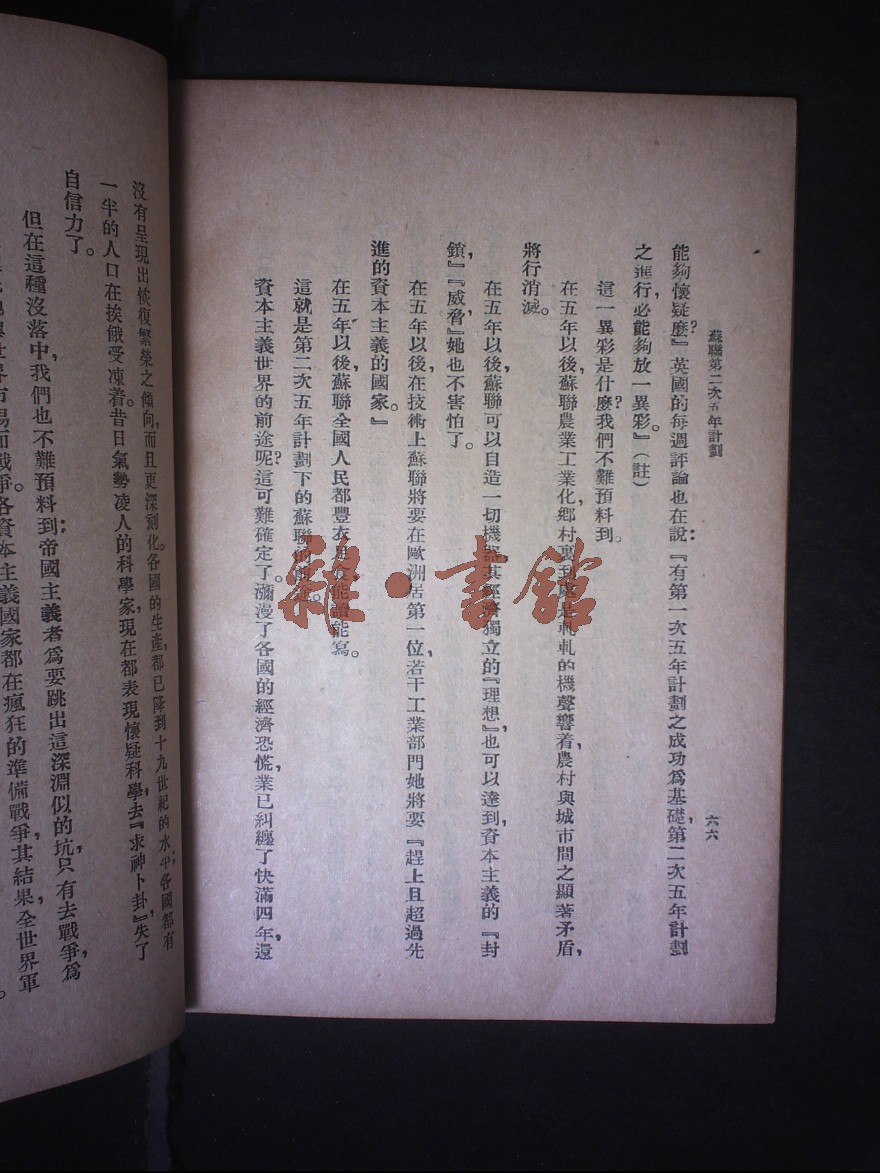 蘇聯第二次五年計劃
六六
能夠懷疑麼?』英國的每週評論也在說:『有第一次五年計劃之成功爲基礎,第二次五年計劃
之進行,必能夠放一異彩。』(註)
這一異彩是什麼?我們不難預料到。
在五年以後,蘇聯農業工業化,鄉村裏到處是軋軋的機聲響着,農村與城市間之顯著矛盾,
將行消滅。
在五年以後,蘇聯可以自造一切機器,其經濟獨立的『理想』,也可以達到,資本主義的『封
鎖』,『威脅』,她也不害怕了。
在五年以後,在技術上蘇聯將要在歐洲居第一位,若干工業部門她將要『趕上且超過先
進的資本主義的國家。』
在五年以後,蘇聯全國人民都豐衣足食,能讀能寫。
這就是第二次五年計劃下的蘇聯的前途。
資本主義世界的前途呢?這可難確定了。瀰漫了各國的經濟恐慌,業已糾纏了快滿四年,還
沒有呈現出恢復繁榮之傾向,而且更深刻化。各國的生產,都已降到十九世紀的水平;各國都有
一半的人口在挨餓受凍着。昔日氣勢凌人的科學家,現在都表現懷疑科學,去『求神卜卦』,失了
自信力了。
但在這種沒落中,我們也不難預料到:帝國主義者爲要跳出這深淵似的坑,只有去戰爭,爲
世界市場而戰爭。各資本主義國家都在瘋狂的準備戰爭,其結果,全世界軍
雜·書館